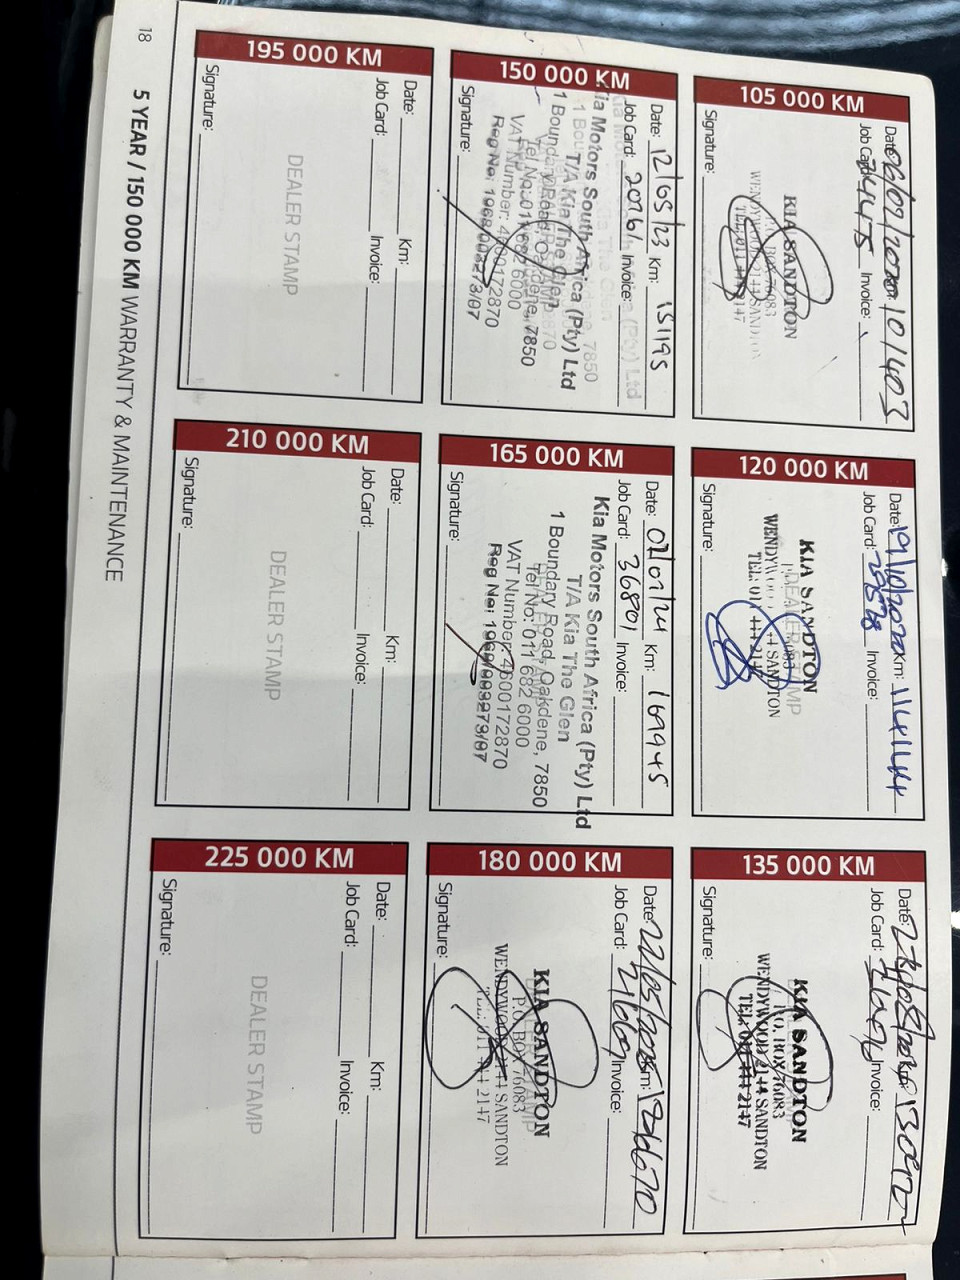 105 000 KM
Date: 06/02/2020 101403
Job Card: 74475 Invoice:
KIA SANDTON
P.O. BOX 76083
WENDYWOOD 2144 SANDTON
TEL: 011 444 2147
Signature:
120 000 KM
Date: 19/10/2020 Km: 114144
Job Card: Invoice:
DEALER STAMP
KIA SANDTON
WENDYWOOD 2144 SANDTON
TEL: 011 444 2147
Signature:
135 000 KM
Date: Km:
Job Card: Invoice:
KIA SANDTON
P.O. BOX 76083
WENDYWOOD 2144 SANDTON
TEL: 011 444 2147
Signature:
150 000 KM
Date: 12/05/23 Km: 151195
Job Card: 20761 Invoice:
Kia Motors South Africa (Pty) Ltd
T/A Kia The Glen
1 Boundary Road, Oakdene, 7850
Tel No: 011 682 6000
VAT Number: 4600172870
Reg No: 1969/009273/07
Signature:
165 000 KM
Date: 02/01/24 Km: 169945
Job Card: 36801 Invoice:
Kia Motors South Africa (Pty) Ltd
T/A Kia The Glen
1 Boundary Road, Oakdene, 7850
Tel No: 011 682 6000
VAT Number: 4600172870
Reg No: 1969/009273/07
Signature:
180 000 KM
Date: 22/05/2025 Km:
Job Card: Invoice:
KIA SANDTON
P.O. BOX 76083
WENDYWOOD 2144 SANDTON
TEL: 011 444 2147
Signature:
195 000 KM
Date: Km:
Job Card: Invoice:
DEALER STAMP
Signature:
210 000 KM
Date: Km:
Job Card: Invoice:
DEALER STAMP
Signature:
225 000 KM
Date: Km:
Job Card: Invoice:
DEALER STAMP
Signature:
18 5 YEAR / 150 000 KM WARRANTY & MAINTENANCE